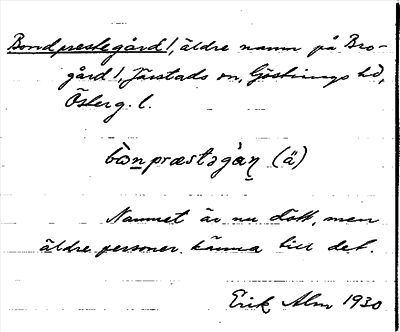 Bondprestegård 1, äldre namn på Bro-
gård 1, Järstads sn, Göstrings hd,
Österg. l.
bɷ̀n̠præstəgàn̠ (ä)
Namnet är nu dött, men
äldre personer känna till det.
Erik Alm 1930